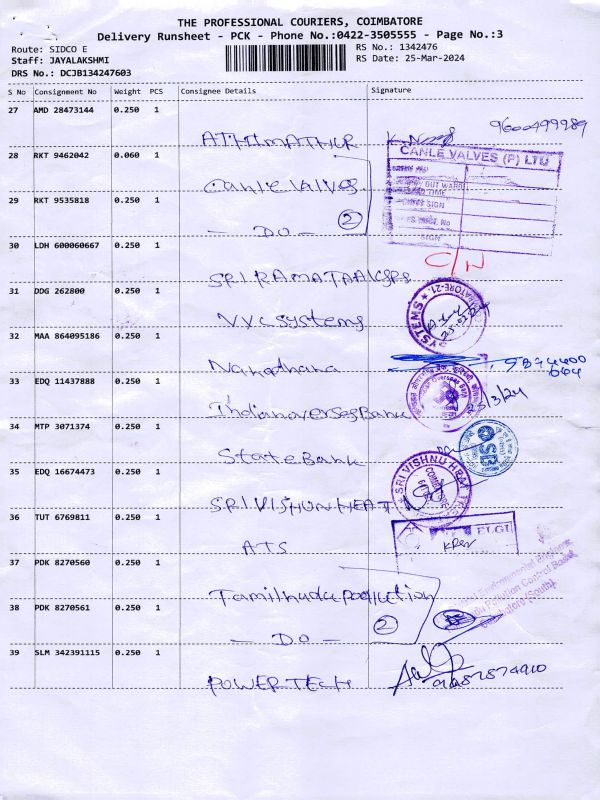 THE PROFESSIONAL COURIERS, COIMBATORE
Delivery Runsheet - PCK - Phone No.:0422-3505555 - Page No.:3
Route: SIDCO E
RS No.: 1342476
Staff: JAYALAKSHMI
RS Date: 25-Mar-2024
DRS No.: DCJB134247603
S No Consignment No Weight PCS Consignee Details Signature
27 AMD 28473144 0.250 1 ATHIMATHUR 9600499989
28 RKT 9462042 0.060 1 Canle Valves CANLE VALVES (P) LTD
29 RKT 9535818 0.250 1 - DO - 2 SIGN
30 LDH 600060667 0.250 1 C/N
31 DDG 262800 0.250 1 VXL Systems SYSTEMS
32 MAA 864095186 0.250 1
33 EDQ 11437888 0.250 1 Indian Overses Bank 25/3/24
34 MTP 3071374 0.250 1 State Bank
35 EDQ 16674473 0.250 1 SRI. VISHUN HEAT SRI VISHNU
36 TUT 6769811 0.250 1 ATS ELGI
37 PDK 8270560 0.250 1 Tamilnudu pollution Pollution Control Board
38 PDK 8270561 0.250 1 - DO - 2 Coimbatore (South)
39 SLM 342391115 0.250 1 POWER TECH